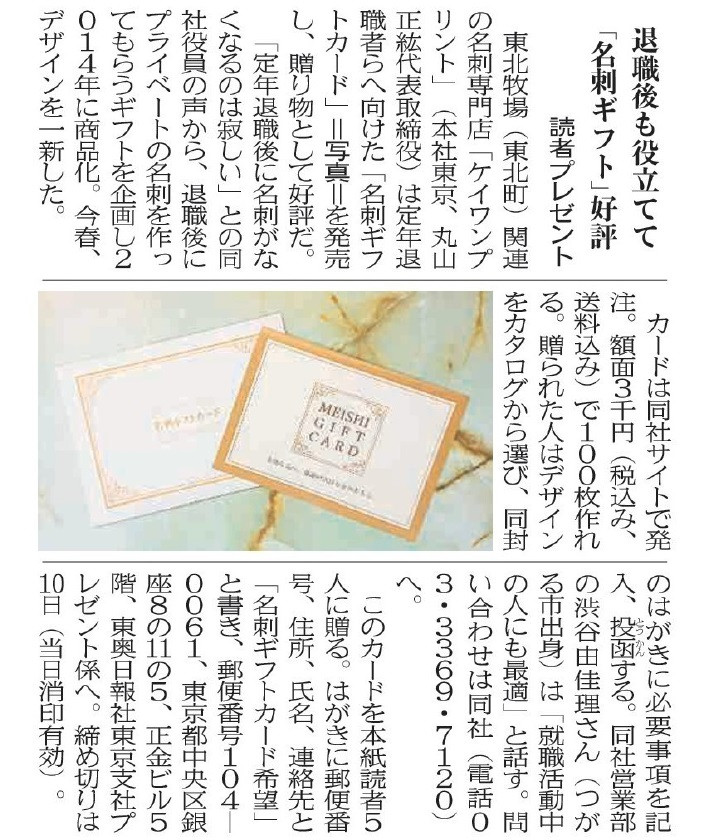 退職後も役立てて
「名刺ギフト」好評
読者プレゼント
東北牧場（東北町）関連
の名刺専門店「ケイワンプ
リント」（本社東京、丸山
正紘代表取締役）は定年退
職者らへ向けた「名刺ギフ
トカード」＝写真＝を発売
し、贈り物として好評だ。
「定年退職後に名刺がな
くなるのは寂しい」との同
社役員の声から、退職後に
プライベートの名刺を作っ
てもらうギフトを企画し2
014年に商品化。今春、
デザインを一新した。
カードは同社サイトで発
注。額面3千円（税込み、
送料込み）で100枚作れ
る。贈られた人はデザイン
をカタログから選び、同封
名刺ギフトカード
MEISHI
GIFT
CARD
のはがきに必要事項を記
入、投函する。同社営業部
とうかん
の渋谷由佳理さん（つが
る市出身）は「就職活動中
の人にも最適」と話す。問
い合わせは同社（電話0
3・3369・7120）
へ。
このカードを本紙読者5
人に贈る。はがきに郵便番
号、住所、氏名、連絡先と
「名刺ギフトカード希望」
と書き、郵便番号104―
0061、東京都中央区銀
座8の11の5、正金ビル5
階、東奥日報社東京支社プ
レゼント係へ。締め切りは
10日（当日消印有効）。